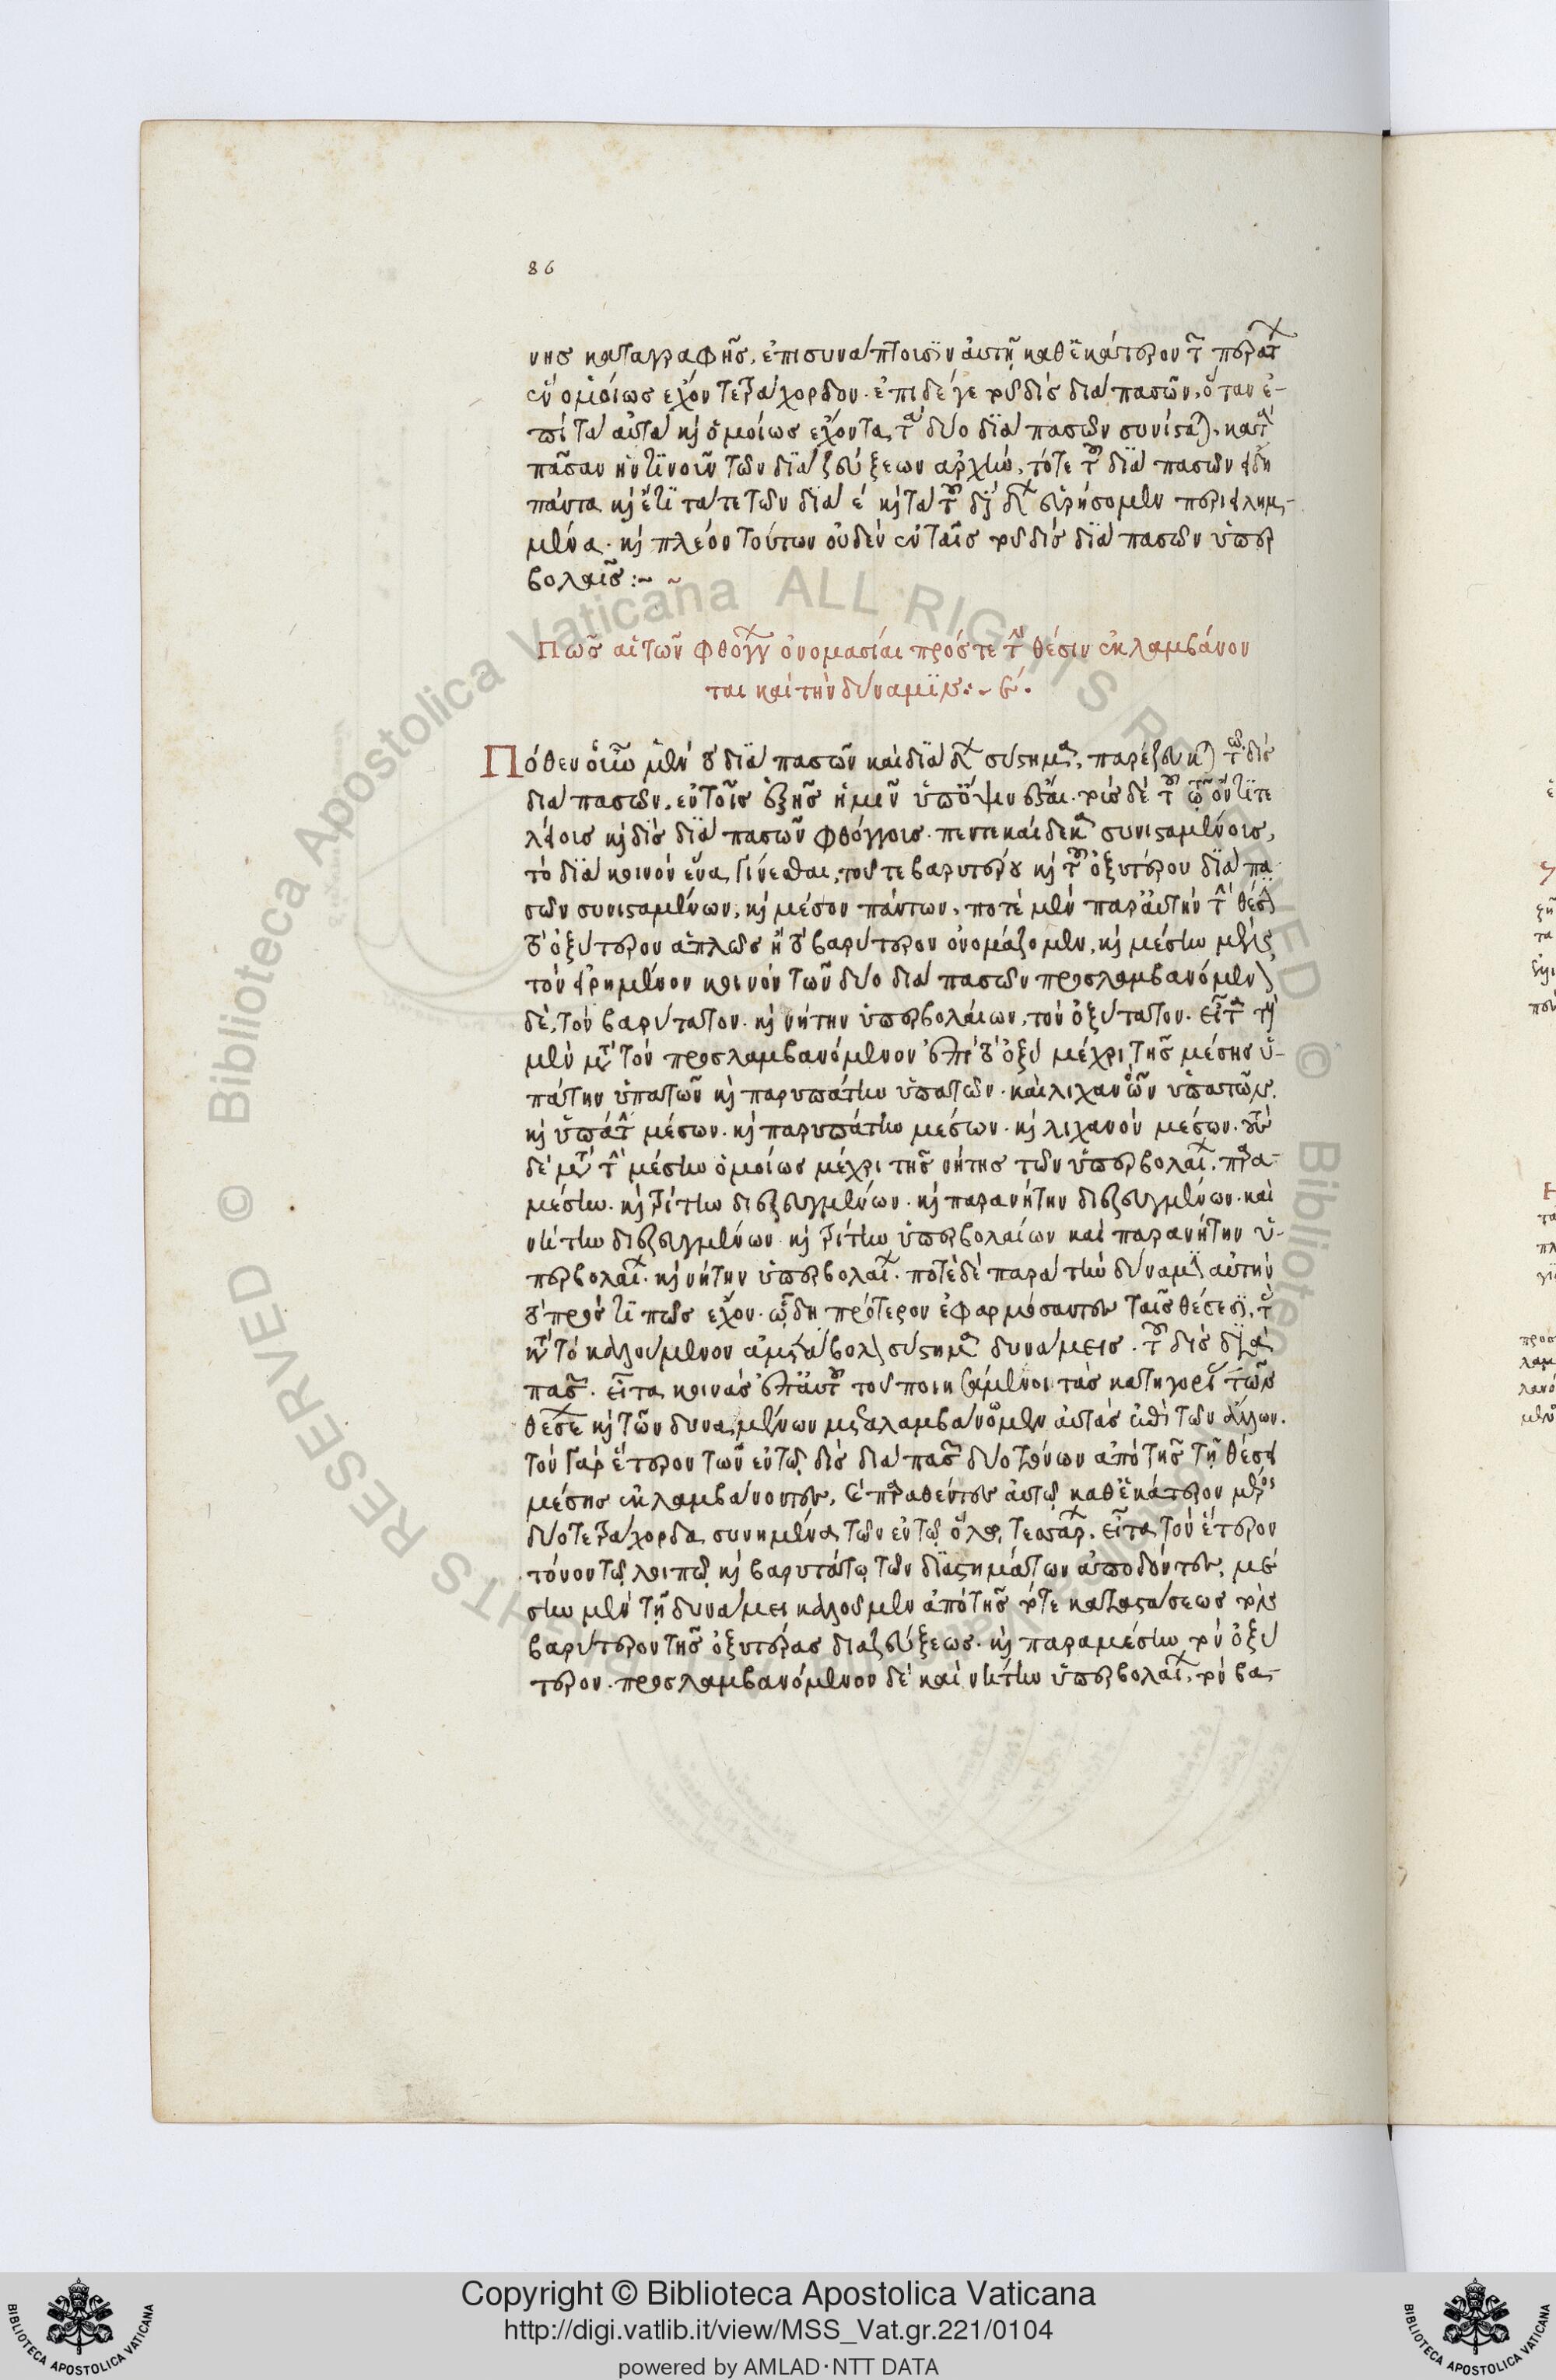 86
νης καταγραφῆς, ἐπισυνάπτοισϊν αὐτῆ καθ ἑκάτερον τ περάτ
ἓν ὁμοίως ἔχον τετράχορδον. ἐπι δέ γε τοῦ δὶς διὰ πασῶν, ὅταν ἐ-
πὶ τὰ αὐτὰ κὶ ὁμοίως ἔχοντα, τὰ δύο δϊὰ πασῶν συνίσται, κατὰ
πᾶσαν ἡντϊνοῦν τῶν δϊαζεύξεων ἀρχὴν, τότε τοῦ δϊὰ πασῶν εἴδη
πάντα κὶ ἔτϊ τά τε τῶν δϊὰ ε κὶ τὰ τοῦ δϊὰ δ εὑρήσομεν περιειλημ-
μένα. κὶ πλέον τούτων οὐδὲν ἐν ταῖς τοῦ δὶς δϊὰ πασῶν ὑπερ
βολαῖς :~ ~
Πῶς αἱ τῶν φθόγγ ὀνομασίαι πρός τε τὴν θέσιν ἐκλαμβάνον
ται καὶ τὴν δύναμϊν :~ ε.
Πόθεν οὖν μὲν τὸ δϊὰ πασῶν καὶ δϊὰ δ σύστημα, παρέζευκται τῶ δὶς
διὰ πασῶν, ἐν τοῖς ἑξῆς ἡμῖν ὑπόψιν ἔσται. τοῖς δὲ τοῦ ὄντϊ τε
λείοις κὶ δὶς δϊὰ πασῶν φθόγγοις πεντεκαίδεκα συνισταμένοις,
τὸ δϊὰ κοινὸν ἕνα γίνεσθαι, τοῦ τε βαρυτέρου κὶ τοῦ ὀξυτέρου δϊὰ πα
σῶν συνισταμένων, κὶ μέσον πάντων, ποτὲ μὲν παρ αὐτὴν τὴν θέσιν
τὸ ὀξύτερον ἁπλῶς ἢ τὸ βαρύτερον ὀνομάζομεν, κὶ μέσην μὲν
τὸν εἰρημένον κοινὸν τῶν δύο διὰ πασῶν προσλαμβανόμενον
δὲ, τὸν βαρύτατον. κὶ νήτην ὑπερβολαίων, τὸν ὀξύτατον. εἶτα τὴν
μὲν μετὰ τὸν προσλαμβανόμενον ἐπὶ τὸ ὀξὺ μέχρι τῆς μέσης ὑ-
πάτην ὑπατῶν κὶ παρυπάτην ὑπατῶν. καὶ λιχανὸν ὑπατῶν.
κὶ ὑπάτ μέσων. κὶ παρυπάτην μέσων. κὶ λιχανὸν μέσων. τοὺς
δὲ μετὰ τὴν μέσην ὁμοίως μέχρι τῆς νήτης τῶν ὑπερβολαι, παρα-
μέσην. κὶ τρίτην διεζευγμένων. κὶ παρανήτην διεζευγμένων. καὶ
νήτην διεζευγμένων. κὶ τρίτην ὑπερβολαίων καὶ παρανήτην ὑ-
περβολαι. κὶ νήτην ὑπερβολαι. ποτὲ δὲ παρὰ τὴν δύναμιν αὐτὴν
τὸ πρός τϊ πῶς ἔχον. ὧ δὴ πρότερον ἐφαρμόσαντες ταῖς θέσεσϊ, τὰς
κατὰ τὸ καλούμενον ἀμετάβολον σύστημα δυνάμεις τοῦ δὶς διὰ
πασ. εἶτα κοινὰς ἐπ αὐτοῦ τοῦ ποιησάμενοι τὰς κατηγορίας τῶν
θέσε κὶ τῶν δυναμένων μεταλαμβάνομεν αὐτὰς ἐπὶ τῶν ἄλλων.
τὸν γὰρ ἕτερον τῶν ἐν τῶ δὶς διὰ πασ δύο τόνων ἀπὸ τῆς τῆ θέσει
μέσης ἐκλαμβάνοντες, κὶ παραθέντες αὐτῶ καθ ἑκάτερον μέρος
δύο τετράχορδα συνημμένα τῶν ἐν τῶ ὅλω, τεσσάρ. εἶτα τὸν ἕτερον
τόνον τῶ λοιπῶ κὶ βαρυτάτω τῶν δϊαστημάτων ἀποδόντες, μέ
σην μὲν τῆ δυνάμει καλοῦμεν ἀπὸ τῆς τότε καταστάσεως τὸν
βαρύτερον τῆς ὀξυτέρας διαζεύξεως. κὶ παραμέσην τὸν ὀξύ
τερον. προσλαμβανόμενον δὲ καὶ νήτην ὑπερβολαι, τὸν βα-
Copyright © Biblioteca Apostolica Vaticana
http://digi.vatlib.it/view/MSS_Vat.gr.221/0104
powered by AMLAD·NTT DATA